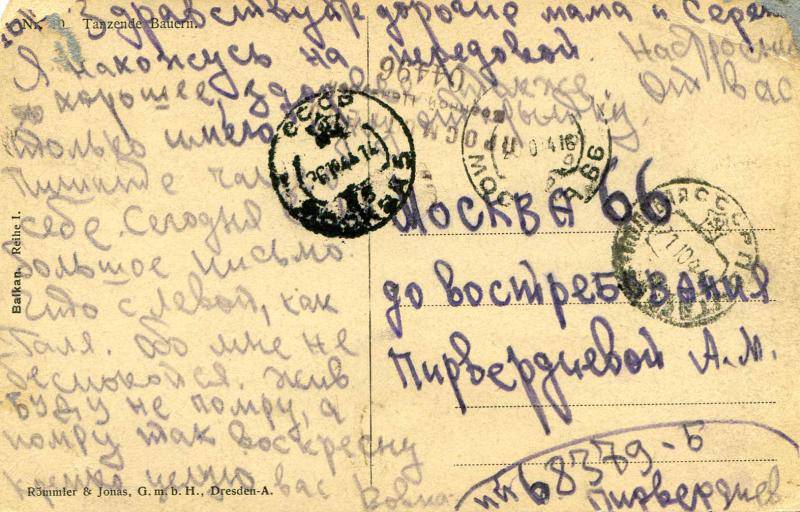 Nr. 10. Tanzende Bauern.
Здравствуйте дорогие мама и Сережа
Я нахожусь на передовой. Настроение
хорошее, также. От вас
только имею открытку.
Пишите
себе. Сегодня
большое письмо
что с Левой, как
Галя. Обо мне не
беспокойся. Жив
буду не помру, а
помру так воскресну
крепко целую вас Вовка
Balkan. Reihe I.
Römmler & Jonas, G. m. b. H., Dresden-A.
Москва 66
до востребования
Пирвердиевой А. М.
пп 68379-Б
Пирвердиев
СССР
МОСКВА
04496
ПРОСМ
военной
MOSCOW